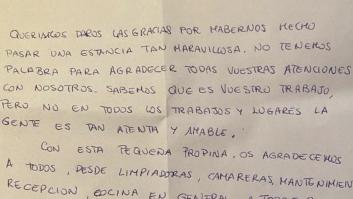 QUERIAMOS DAROS LAS GRACIAS POR HABERNOS HECHO
PASAR UNA ESTANCIA TAN MARAVILLOSA. NO TENEMOS
PALABRA PARA AGRADECER TODAS VUESTRAS ATENCIONES
CON NOSOTROS. SABEMOS QUE ES VUESTRO TRABAJO,
PERO NO EN TODOS LOS TRABAJOS Y LUGARES LA
GENTE ES TAN ATENTA Y AMABLE.
CON ESTA PEQUEÑA PROPINA, OS AGRADECEMOS
A TODOS, DESDE LIMPIADORAS, CAMARERAS, MANTENIMIEN
RECEPCION, COCINA EN GENERAL A TODOS